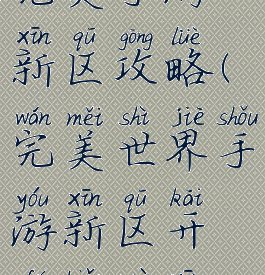 xīn qū gōng lüè
新区攻略(
wán měi shì jiè shǒu
完美世界手
yóu xīn qū kāi
游新区开